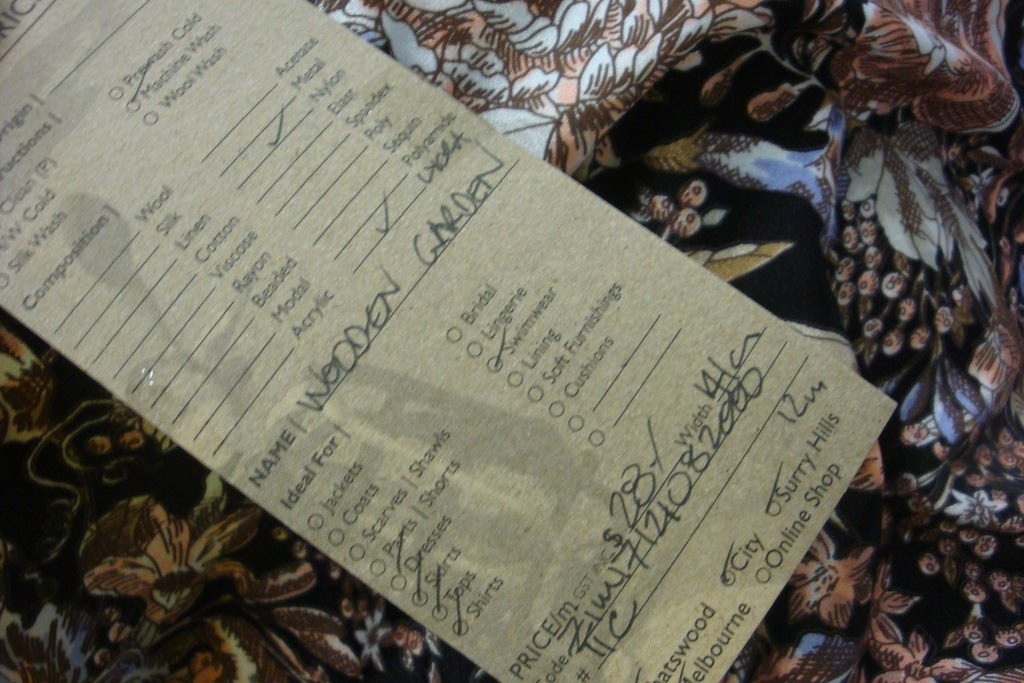 Pre-wash Cold
Machine Wash
Wool Wash
Clean (P)
Silk Wash
Composition |
Wool
Silk
Linen
Cotton
Viscose
Rayon
Beaded
Modal
Acrylic
Acetate
Metal
Nylon
Elast
Spandex
Poly
Sequin
Polyamide
NAME | WOODEN GARDEN
Ideal For |
Jackets
Coats
Scarves | Shawls
Pants | Shorts
Dresses
Skirts
Tops
Shirts
Bridal
Lingerie
Swimwear
Lining
Soft Furnishings
Cushions
PRICE/m GST INC $ 28 Width
11C
12m
City
Surry Hills
Online Shop